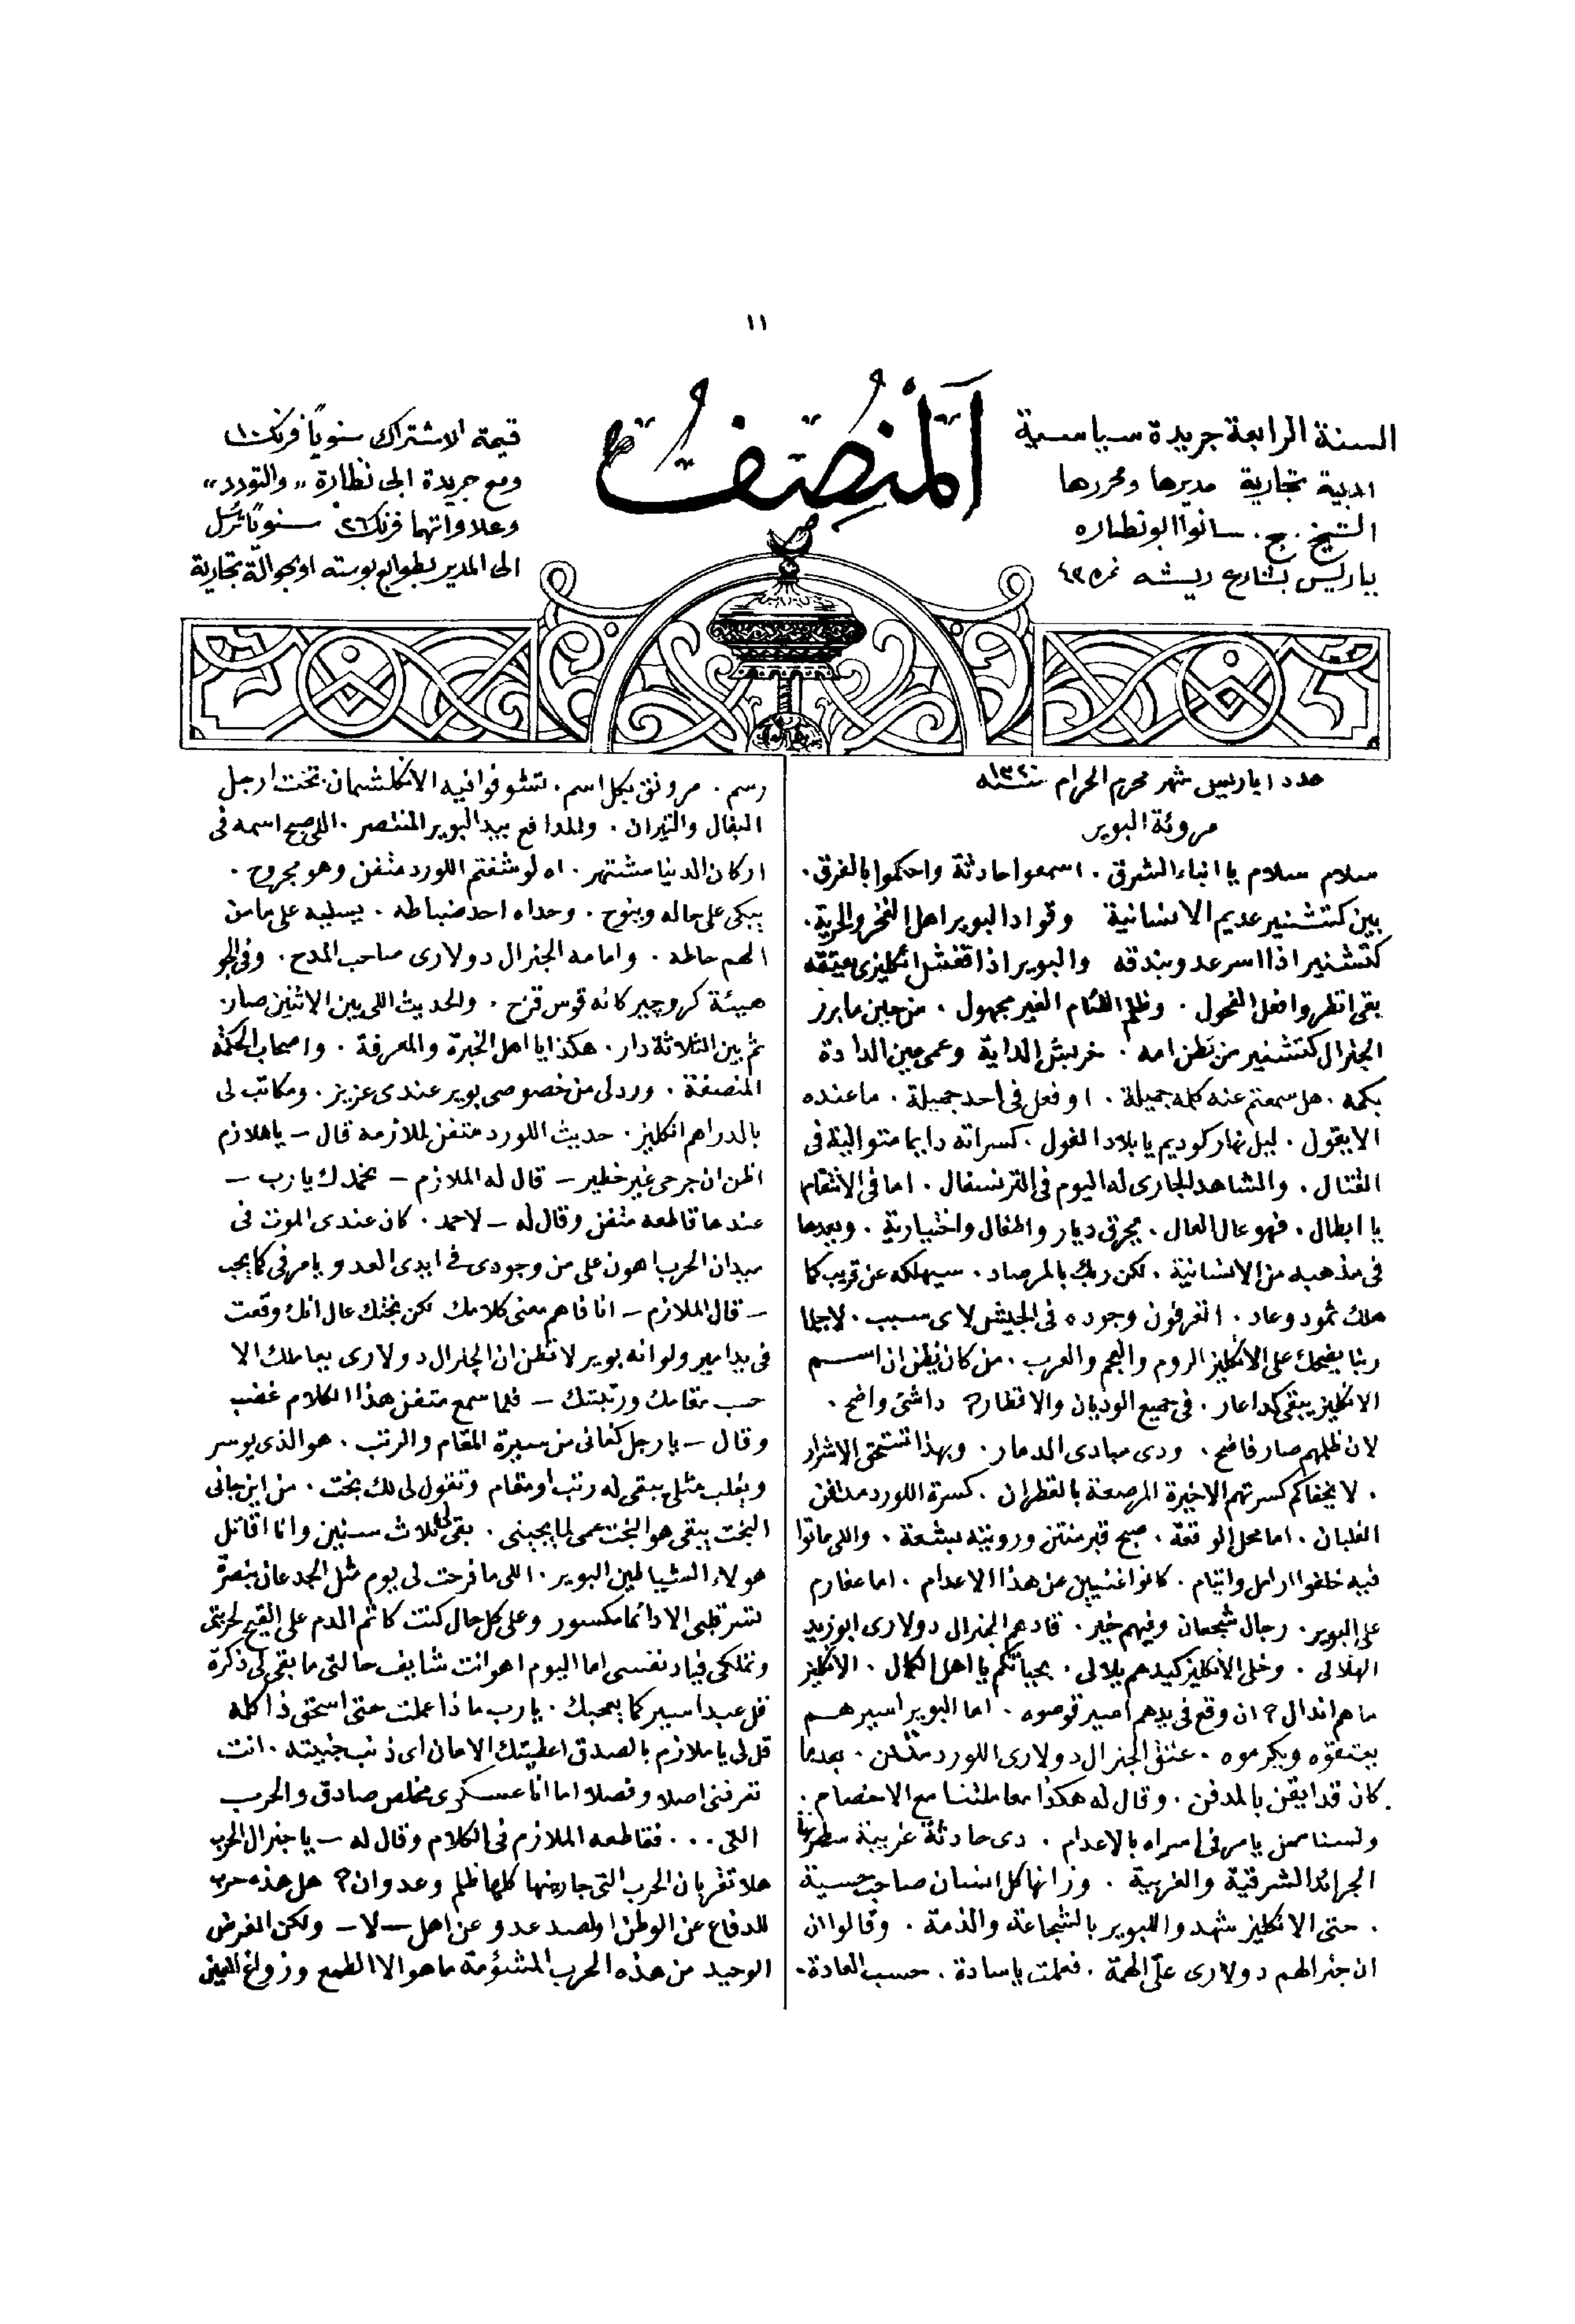 ١١
المنصف
السنة الرابعة جريدة سياسية
ادبية تجارية مديرها ومحررها
الشيخ . ج . سانوا ابو نظاره
بباريس بشارع ريشه نمره ٤٣
قيمة الاشتراك سنويًا فرنك ١٠
ومع جريدة ابى نظارة ,, والتودد ,,
وعلاواتهما فرنك ٢٦ سنويًا ترسل
الى المدير بطوابع بوسته او بحوالة تجارية
عدد ١ باريس شهر محرم الحرام سنة ١٣٢٠
مروئة البوير
سلام سلام يا ابناء الشرق . اسمعوا حادثة واحكموا بالفرق .
بين كتشنير عديم الانسانية وقواد البوير اهل الفخر والحرية .
كتشنير اذا اسر عدو يبندقه والبوير اذا قفش انكليزى يعتقه
بقى انظروا فعل الفحول . وظلم اللئام الغير مجهول . من حين ما برز
الجنرال كتشنير من بطن امه . خربش الداية وعمى عين الدادة
بكمه . هل سمعتم عنه كلمه جميلة . او فعل فى احد جميلة . ما عنده
الا يقول . ليل نهار كوديم يا بلاد الفول . كسراته دايما متوالية فى
القتال . والمشاهد الجارى له اليوم فى الترنسفال . اما فى الانتقام
يا ابطال . فهو عال العال . يحرق ديار واطفال واختيارية . وبعدها
فى مذهبه من الانسانية . لكن ربك بالمرصاد . سيهلكه عن قريب كما
هلك ثمود وعاد . اتعرفون وجوده فى الجيش لاى سبب . لاجلما
ربنا يضحك على الانكليز الروم والعجم والعرب . من كان يظن ان اسم
الانكليز يبقى كدا عار . فى جميع الوديان والاقطار ? دا شئ واضح .
لان ظلمهم صار فاضح . ودى مبادى الدمار . وبهذا تستحق الاشرار
. لا يخفاكم كسرتهم الاخيرة المرصعة بالقطران . كسرة اللورد متفن
الغلبان . اما محل الوقعة . صبح قبر منتن ورويته بشعة . واللى ماتوا
فيه خلفوا ارامل وايتام . كانوا غنيين عن هذا الاعدام . اما عفارم
على البوير . رجال شجعان وفيهم خير . قادهم الجنرال دولارى ابو زيد
الهلالى . وخلى الانكليز كبيدهم يلالى . بحياتكم يا اهل الكمال . الانكليز
ما هم اندال ? ان وقع فى يدهم اسير قوصوه . اما البوير اسيرهم
يعتقوه ويكرموه . عتق الجنرال دولارى اللورد متفن . بعدما
كان قد ايقن بالمدفن . وقال له هكذا معاملتنا مع الاخصام .
ولسنا ممن يامر فى اسراه بالاعدام . دى حادثة غريبة سطرتها
الجرائد الشرقية والغربية . وزانها كل انسان صاحب حسية
. حتى الانكليز شهدوا للبوير بالشجاعة والذمة . وقالوا ان
ان جنرالهم دولارى علىّ الهمة . فعملت يا سادة . حسب العادة .
رسم . مرونق بكل اسم . تشوفوا فيه الانكلشمان تحت ارجل
البغال والثيران . والمدافع بيد البوير المنتصر . اللى صبح اسمه فى
اركان الدنيا مشتهر . اه لو شفتم اللورد متفن وهو مجروح .
يبكى على حاله وينوح . وحداه احد ضباطه . يسليه على ما من
الهم حاطه . وامامه الجنرال دولارى صاحب المدح . وفى الجو
هيئة كروجير كانه قوس قزح . والحديث اللى بين الاثنين صار
ثم بين الثلاثة دار . هكذا يا اهل الخبرة والمعرفة . واصحاب الحكمة
المنصفة . ورد لى من خصوصى بوير عندى عزيز . ومكاتب لى
بالدراهم انكليز . حديث اللورد متفن لملازمه قال — يا ملازم
اظن ان جرحى غير خطير — قال له الملازم — نحمدك يا رب —
عندها قاطعه متفن وقال له — لا حمد . كان عندى الموت فى
ميدان الحرب اهون على من وجودى فى ايدى العدو يامر فى كما يحب
— قال الملازم — انا فاهم معنى كلامك لكن بختك عال انك وقعت
فى يد امير ولو انه بوير لا تظن ان الجنرال دولارى يعاملك الا
حسب مقامك ورتبتك — فلما سمع متفن هذا الكلام غضب
وقال — يا رجل كفانى من سيرة المقام والرتب . هو الذى يوسر
ويغلب مثلى يبقى له رتب او مقام وتقول لى لك بخت . من اين جانى
البخت يبقى هو البخت عمى لما يجبنى . بقى لى ثلاث سنين وانا اقاتل
هولاء الشياطين البوير . اللى ما فرحت لى يوم مثل الجدعان بنصرة
تسر قلبى الا دائما مكسور وعلى كل حال كنت كاتم الدم على القيح لحريتى
وتملكى قياد نفسى اما اليوم اهو انت شايف حالتى ما بقى لى ذكرة
قل عبد اسير كما يعجبك . يا رب ماذا عملت حتى استحق ذا كله
قل لى يا ملازم بالصدق اعطيتك الامان اى ذنب جنيته . انت
تعرفنى اصلا وفصلا اما انا عسكرى مخلص صادق والحرب
التى . . . فقاطعه الملازم فى الكلام وقال له — يا جنرال الحرب
هلا تقر بان الحرب التى جاربنها كلها ظلم وعدوان ? هل هذه حرب
للدفاع عن الوطن او لصد عدو عن اهل — لا — ولكن الغرض
الوحيد من هذه الحرب المشؤمة ما هو الا الطمع وزوغ العين